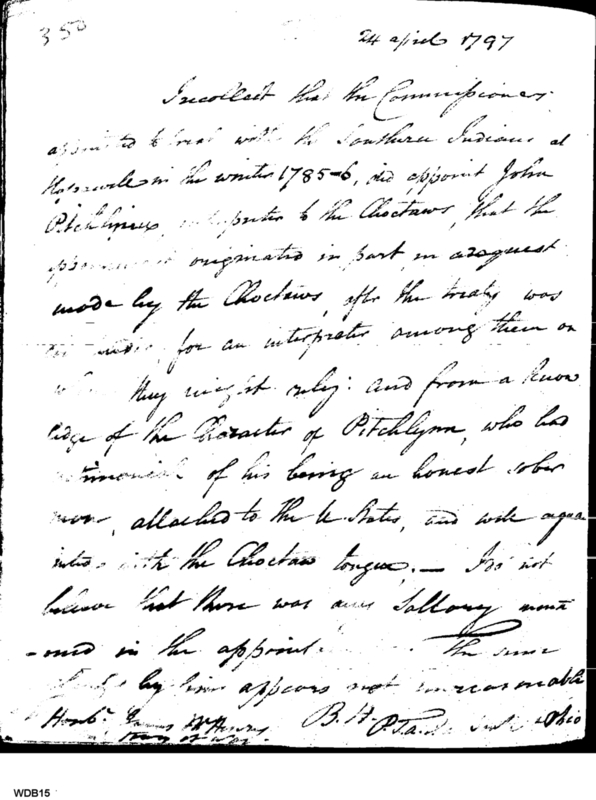 350
24 april 1797
I recollect that the Commissioners
appointed to treat with the Southern Indians at
Hopewele in the winter 1785-6, did appoint John
Pitchlynn, interpreter to the Choctaws, that the
appointment originated in part in a request
made by the Choctaws, after the treaty was
for an interpreter among them on
whom they might rely: and from a know
ledge of the Character of Pitchlynn, who had
testimonials of his being an honest sober
man, attached to the U States, and well aqua
inted with the Choctaw tongue. — I do not
believe that there was any Sallary menti
-oned in the appoint The sum
by him appears not unreasonable
Honble. James McHenry B. H. Ohio